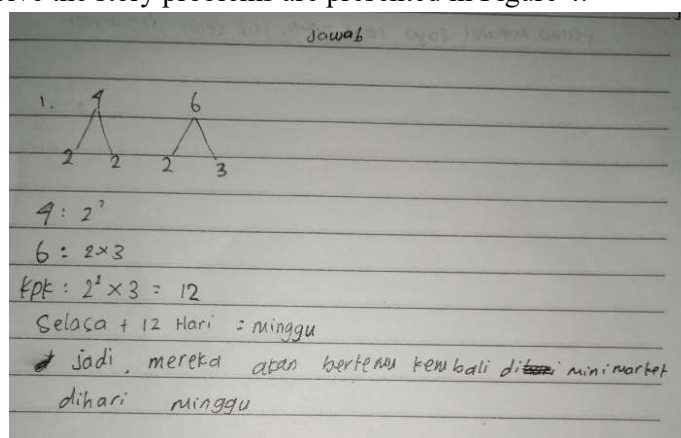 Jawab
1. 4 6
2 2 2 3
4 : 2²
6 : 2×3
KPK : 2² × 3 = 12
Selasa + 12 Hari = Minggu
jadi, mereka akan bertemu kembali di minimarket
dihari minggu